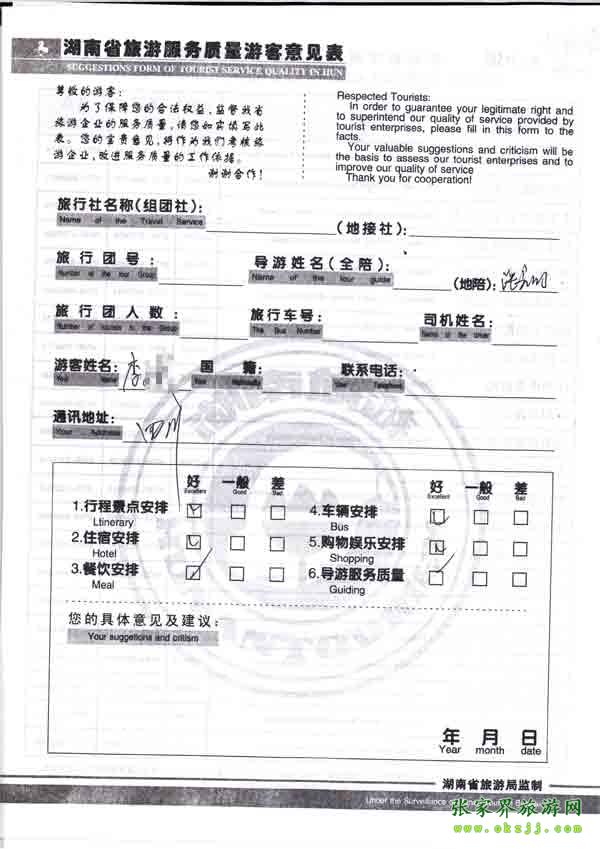 湖南省旅游服务质量游客意见表
SUGGESTIONS FORM OF TOURIST SERVICE QUALITY IN HUN
尊敬的游客:
为了保障您的合法权益,监督我省
旅游企业的服务质量,请您如实填写此
表。您的宝贵意见,将作为我们考核旅
游企业,改进服务质量的工作依据。
谢谢合作!
Respected Tourists:
In order to guarantee your legitimate right and
to superintend our quality of service provided by
tourist enterprises, please fill in this form to the
facts.
Your valuable suggestions and criticism will be
the basis to assess our tourist enterprises and to
improve our quality of service
Thank you for cooperation!
旅行社名称(组团社): (地接社):
Name of the Travel Service
旅行团号: 导游姓名(全陪): (地陪):
Number of the tour Group Name of the tour guide
旅行团人数: 旅行车号: 司机姓名:
Number of tourists in the Group The Bus Number Name of the driver
游客姓名: 李 国籍: 联系电话:
Your Name Your Nationality Your Telephone
通讯地址: 四川
Your Address
好 一般 差 好 一般 差
Excellent Good Bad Excellent Good Bad
1.行程景点安排 4.车辆安排
Ltinerary Bus
2.住宿安排 5.购物娱乐安排
Hotel Shopping
3.餐饮安排 6.导游服务质量
Meal Guiding
您的具体意见及建议:
Your suggetions and critism
年 月 日
Year month date
湖南省旅游局监制
Under the Surveillance
张家界旅游网
www.okzjj.com